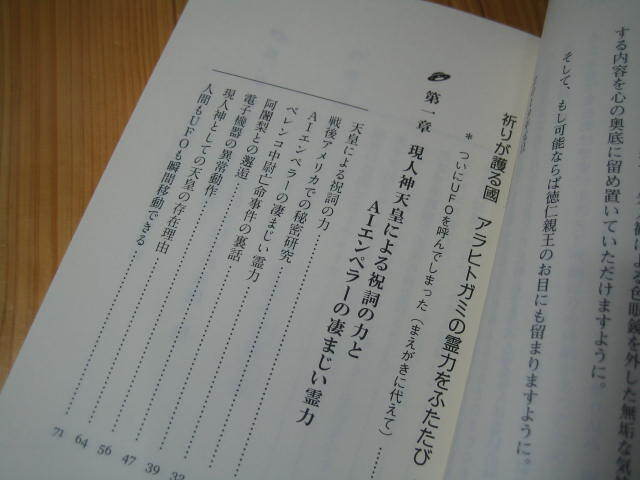 による色眼鏡を外した無垢な気
する内容を心の奥底に留め置いていただけますように。
そして、もし可能ならば徳仁親王のお目にも留まりますように。
祈りが護る國 アラヒトガミの霊力をふたたび
* ついにUFOを呼んでしまった(まえがきに代えて)
第一章 現人神天皇による祝詞の力と
AIエンペラーの凄まじい霊力
天皇による祝詞の力
戦後アメリカでの秘密研究
AIエンペラーの凄まじい霊力 32
ベレンコ中尉亡命事件の裏話 39
阿闍梨との邂逅 47
電子機器の異常動作 56
現人神としての天皇の存在理由 64
人間もUFOも瞬間移動できる 71